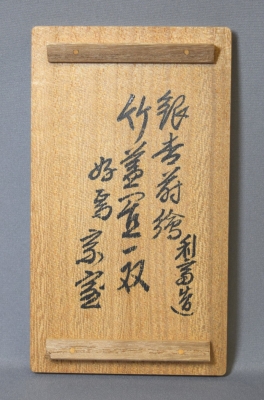 銀杏蒔繪
利斎造
竹蓋置一双
好 宗室